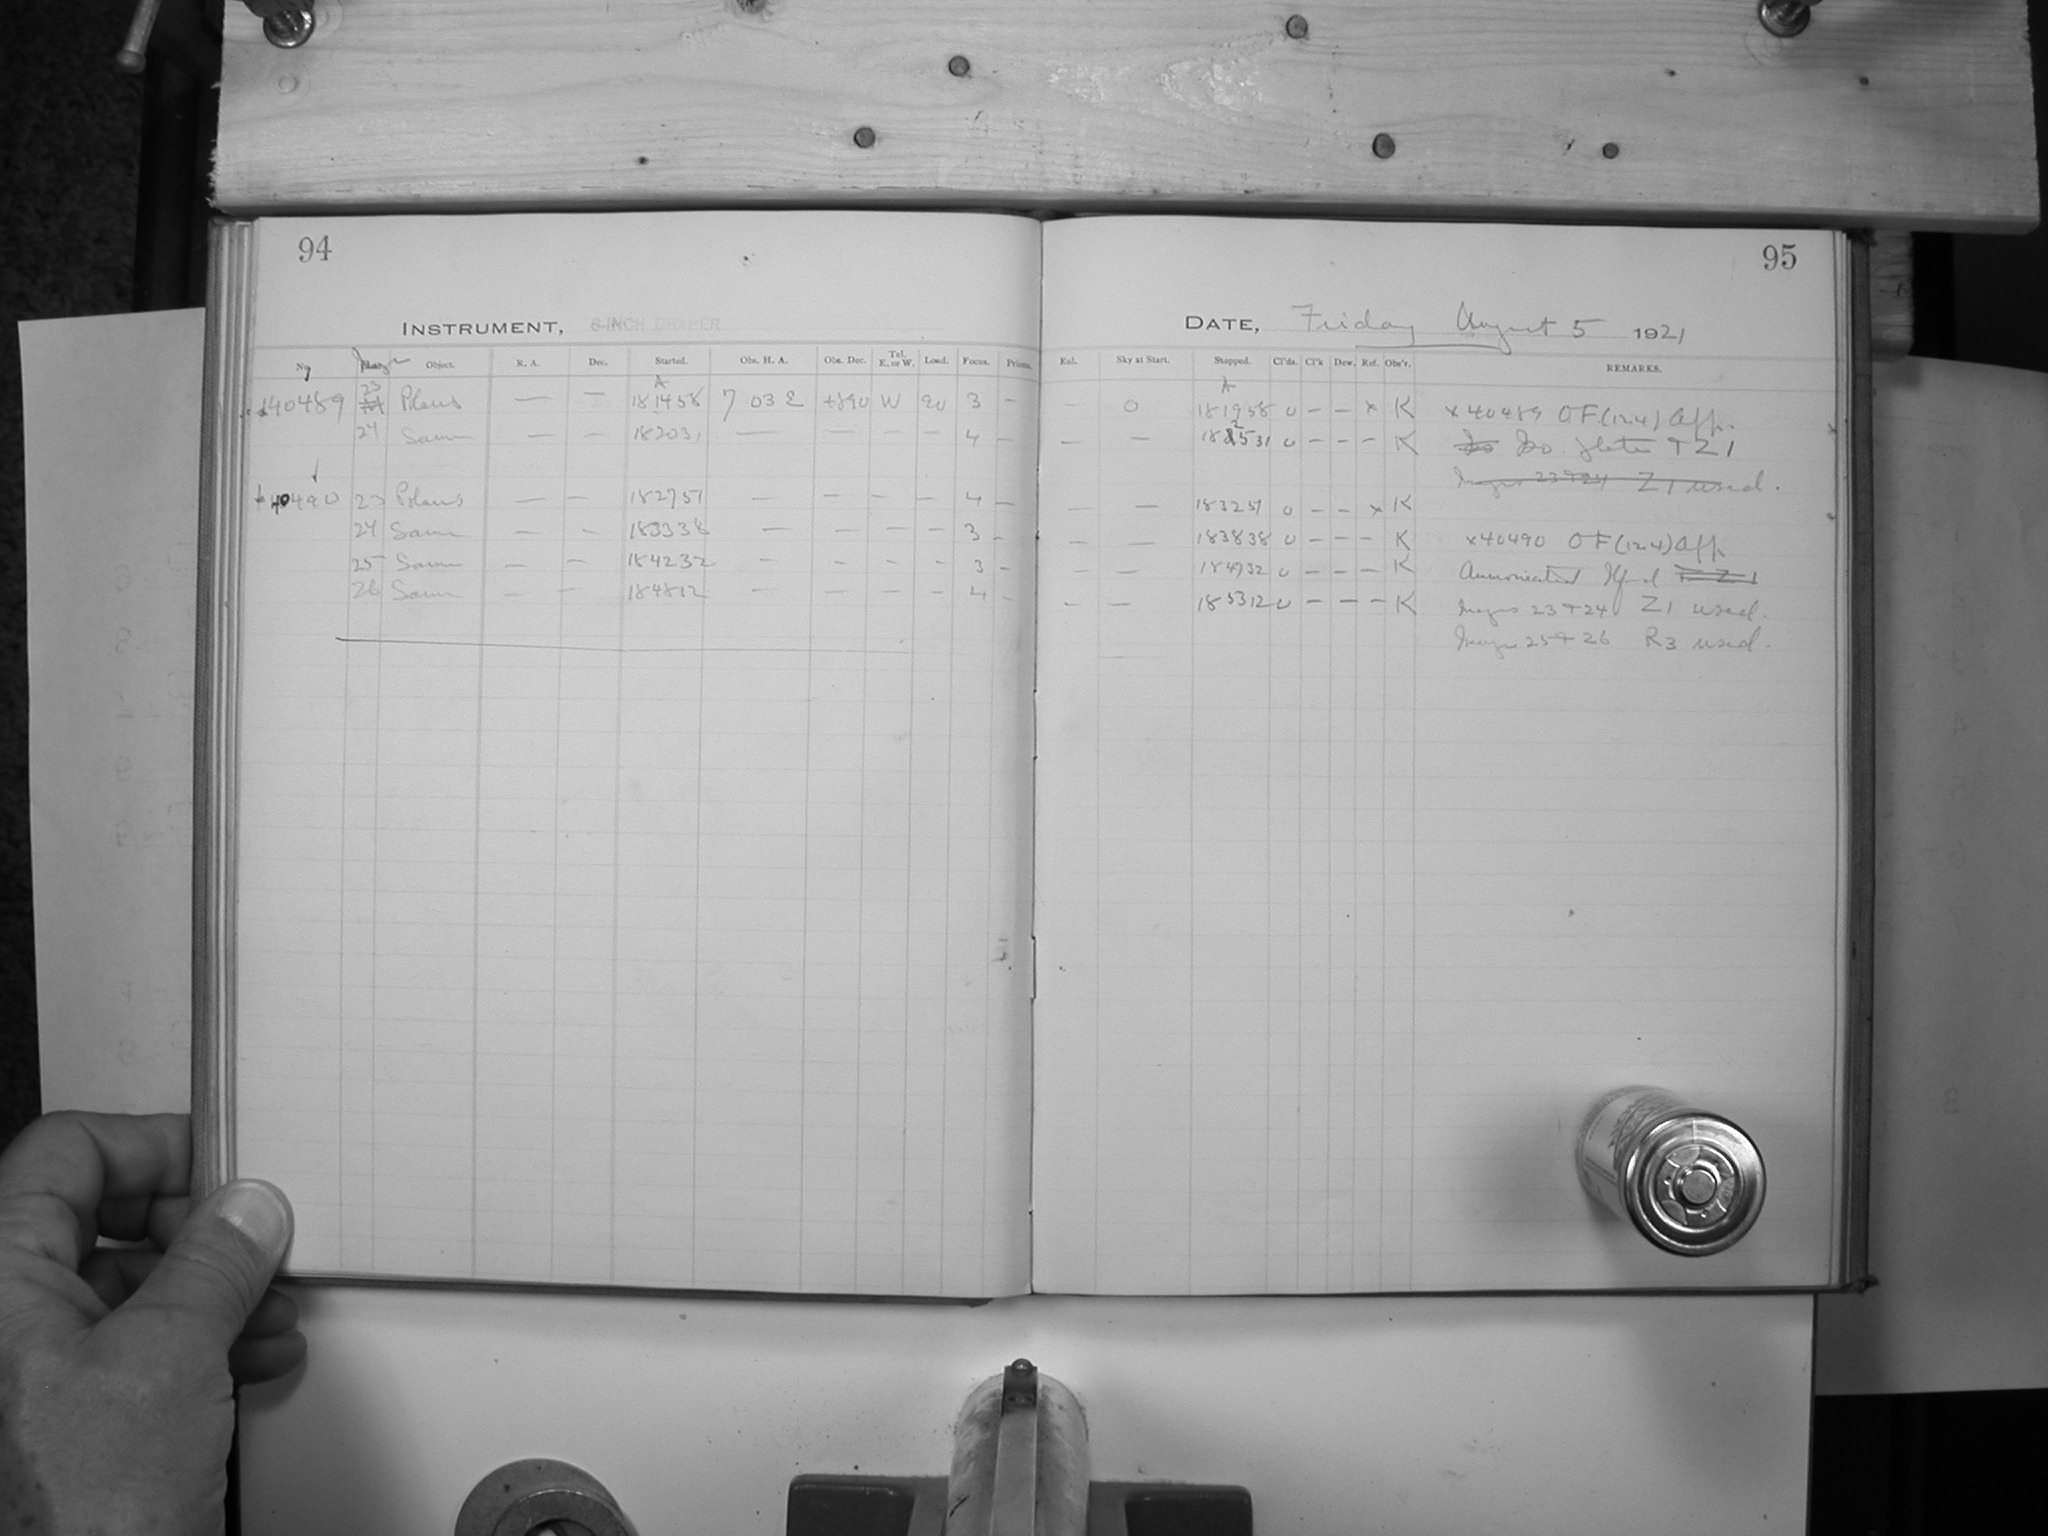 94
INSTRUMENT, 6-INCH DRAPER
No. Image Object. R. A. Dec. Started. Obs. H. A. Obs. Dec. Tel. E. or W. Load. Focus. Prisms.
A
40489 23 Polaris — — 181458 7 03 2 +890 W 90 3 —
24 Same — — 182031 — — — — 4 —
40490 23 Polaris — — 182751 — — — — 4 —
24 Same — — 183338 — — — — 3 —
25 Same — — 184232 — — — — 3 —
26 Same — — 184812 — — — — 4 —
95
DATE, Friday August 5 1921
Rul. Sky at Start. Stopped. Cl'ds. Cl'k Dew. Ref. Obs'r. REMARKS.
A
— 0 181958 0 — — x K x40489 OF(12.4) Aff.
— — 182531 0 — — — K Do. plate + Z1
Images 23+24 Z1 used.
— — 183251 0 — — x K
— — 183838 0 — — — K x40490 OF(12.4) Aff.
— — 184732 0 — — — K Ammoniated
— — 185312 0 — — — K Images 23+24 Z1 used.
Images 25+26 R3 used.